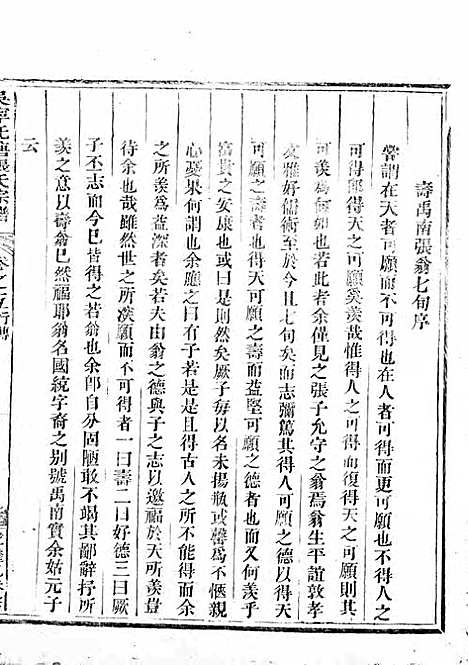 壽禹南張翁七旬序
嘗謂在天者可願而不可得在人者可得而不可願不得人之
可得即得天之可願奚羨哉惟得人之可得而復得天之可願則其
可羨爲何如者余僅見之張子允守之翁焉翁生平誼敦孝
友雅好儒術至於今且七旬矣而志彌篤其得人可願之德以得天
可願之壽而益堅可願之德者也而又何羨乎
富貴之安康也或曰是則然矣厥子每以名未揚瓶或罄爲不愜親
心憂果何謂也余應之曰有子若是是且得古人之所不能得而余
之所羨爲益深者若夫由翁之德與子之志以邀福於天所羨豈
待余哉雖然世之所漢願而不可得者一曰壽二曰好德三曰厥
子丕志而今已皆得之若翁也余卽自分固陋敢不竭其鄙辭抒所
羨之意以壽翁已然福耶翁名國統字裔之别號禹南實余始元子
云
張氏宗譜
卷之